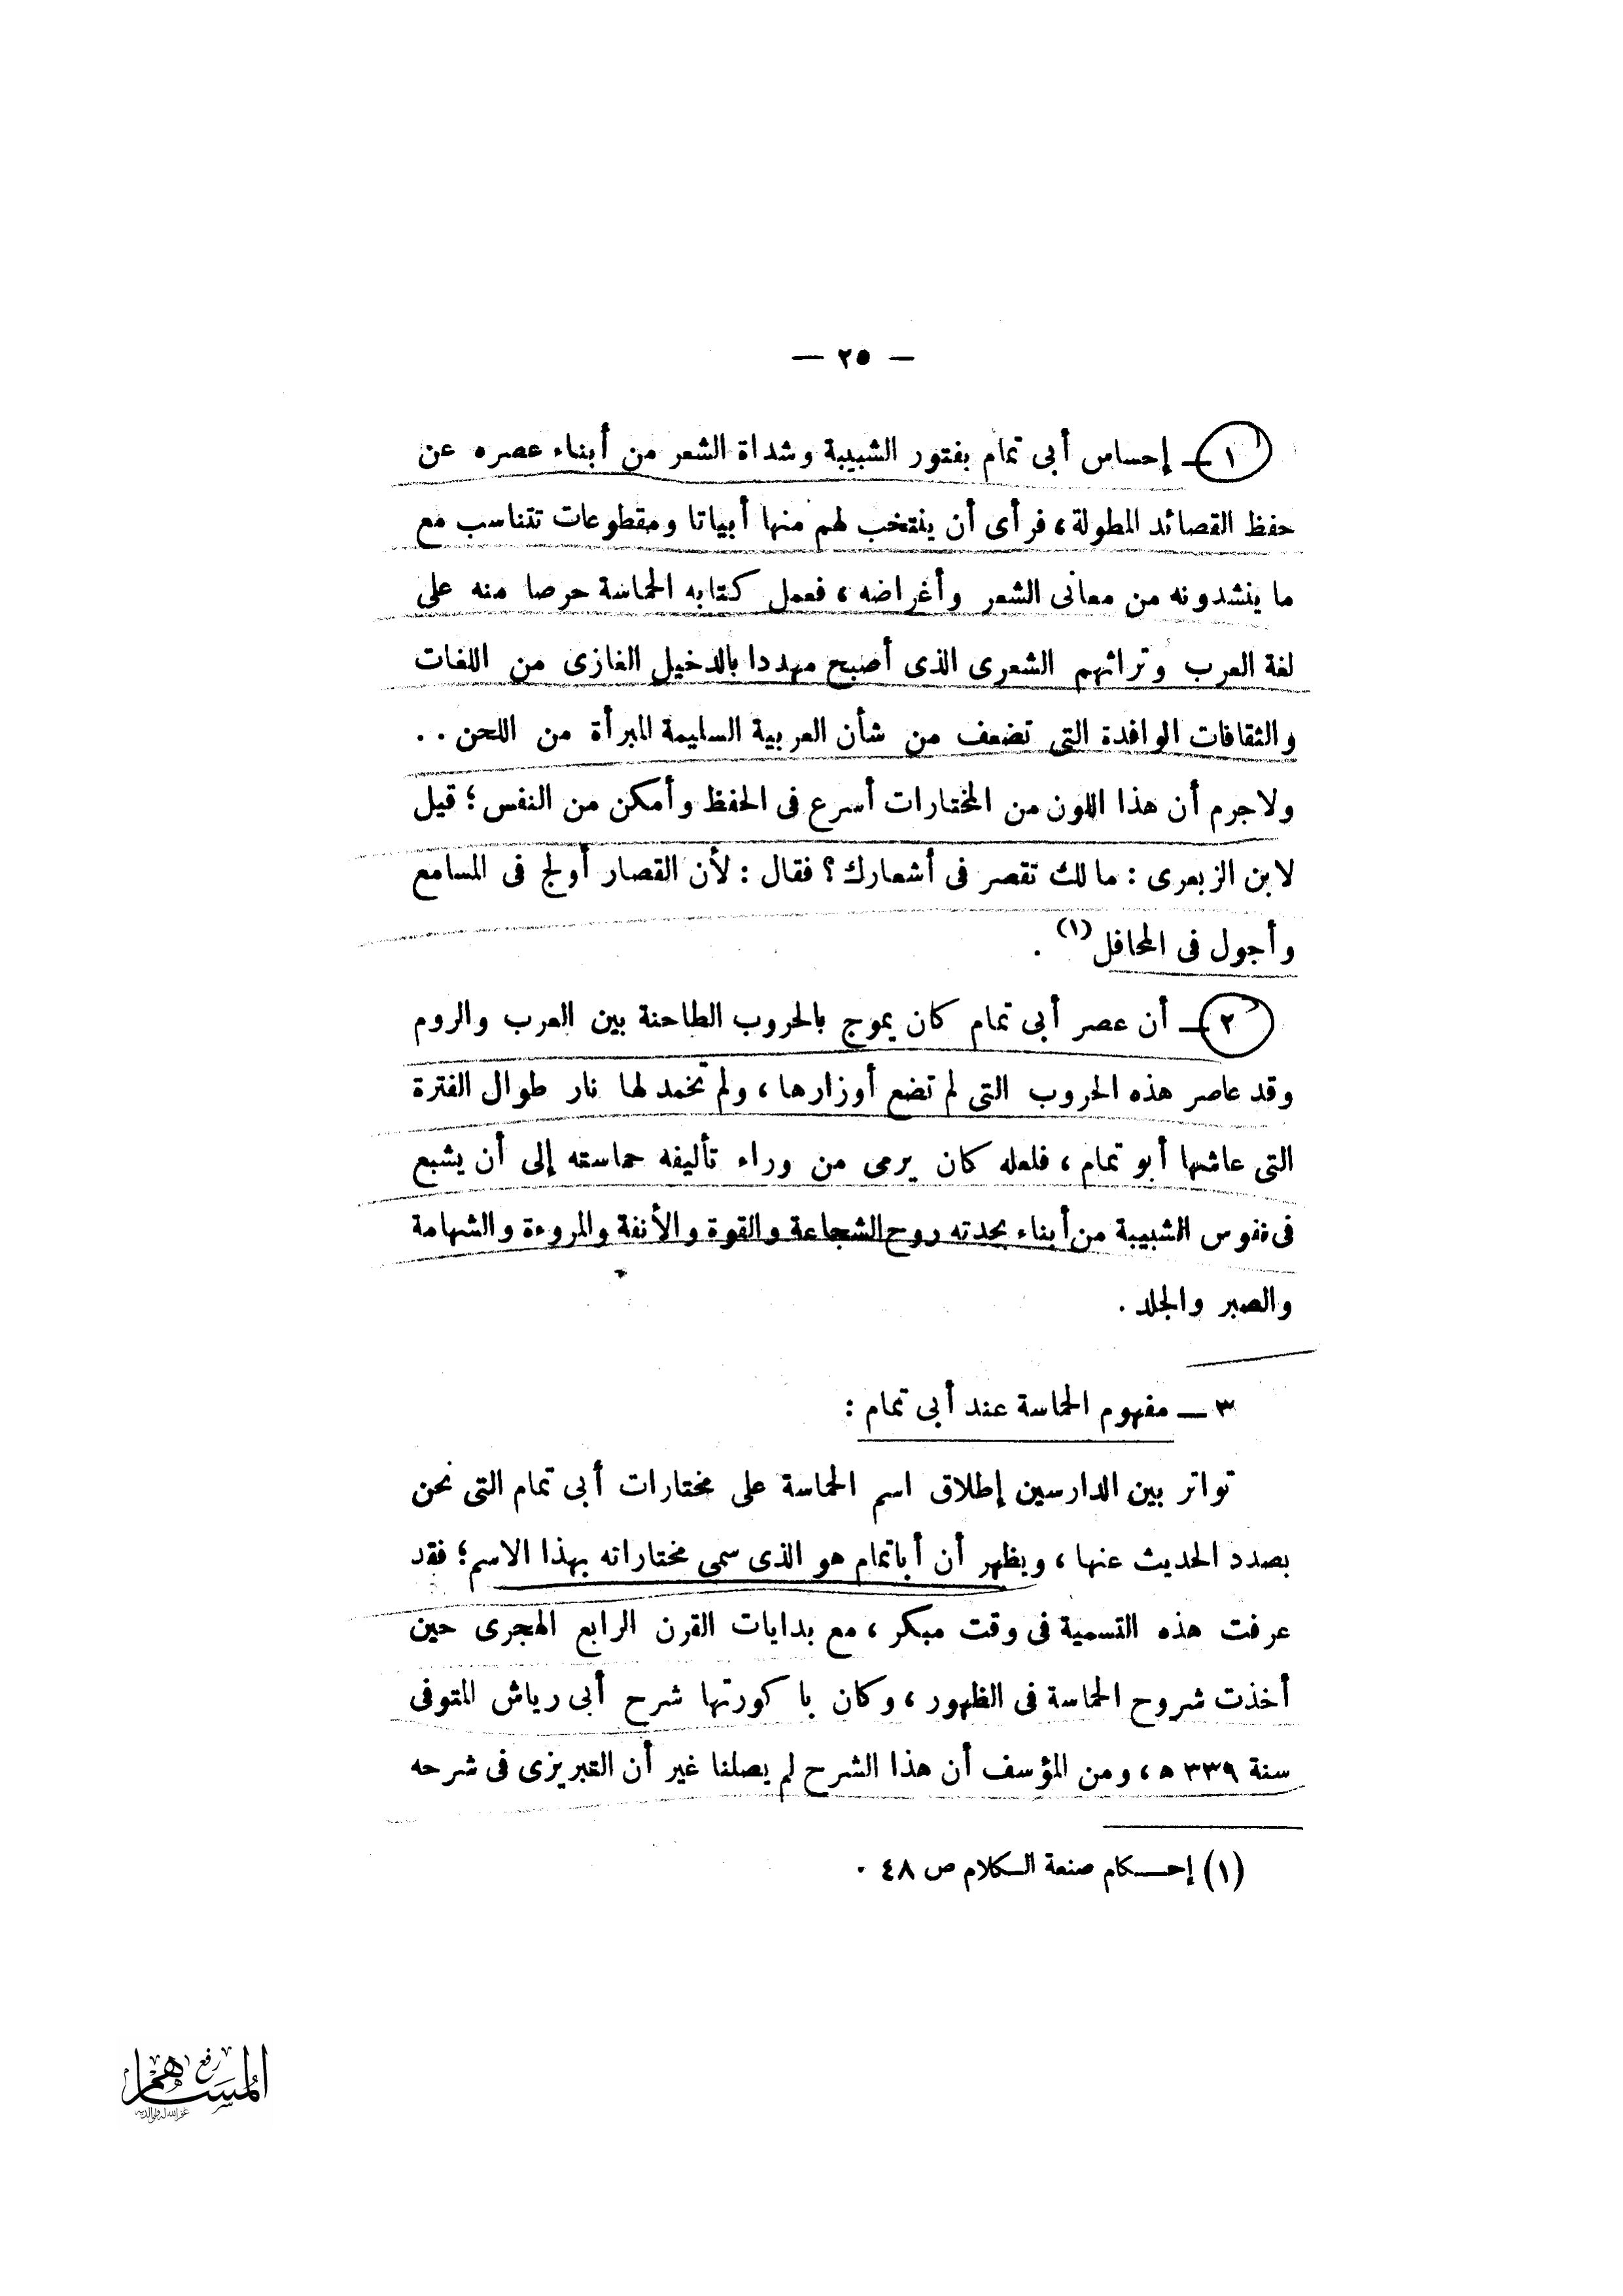 — ٢٥ —
١ — إحساس أبى تمام بفتور الشبيبة وشداة الشعر من أبناء عصره عن
حفظ القصائد المطولة، فرأى أن ينتخب لهم منها أبياتا ومقطوعات تتناسب مع
ما ينشدونه من معانى الشعر وأغراضه، فعمل كتابه الحماسة حرصا منه على
لغة العرب وتراثهم الشعرى الذى أصبح مهددا بالدخيل الغازى من اللغات
والثقافات الوافدة التى تضعف من شأن العربية السليمة المبرأة من اللحن . .
ولاجرم أن هذا اللون من المختارات أسرع فى الحفظ وأمكن من النفس؛ قيل
لابن الزبعرى : مالك تقصر فى أشعارك؟ فقال : لأن القصار أولج فى المسامع
وأجول فى المحافل (١) .
٢ — أن عصر أبى تمام كان يموج بالحروب الطاحنة بين العرب والروم
وقد عاصر هذه الحروب التى لم تضع أوزارها، ولم تخمد لها نار طوال الفترة
التى عاشها أبو تمام، فلعله كان يرمى من وراء تأليفه حماسته إلى أن يشبع
فى نفوس الشبيبة من أبناء بجدته روح الشجاعة والقوة والأنفة والمروءة والشهامة
والصبر والجلد .
٣ — مفهوم الحماسة عند أبى تمام :
تواتر بين الدارسين إطلاق اسم الحماسة على مختارات أبى تمام التى نحن
بصدد الحديث عنها، ويظهر أن أباتمام هو الذى سمى مختاراته بهذا الاسم؛ فقد
عرفت هذه التسمية فى وقت مبكر، مع بدايات القرن الرابع الهجرى حين
أخذت شروح الحماسة فى الظهور، وكان باكورتها شرح أبى رياش المتوفى
سنة ٣٣٩ ه، ومن المؤسف أن هذا الشرح لم يصلنا غير أن التبريزى فى شرحه
(١) إحكام صنعة الكلام ص ٤٨ .
رفع
المساهم
غفر الله له ولوالديه